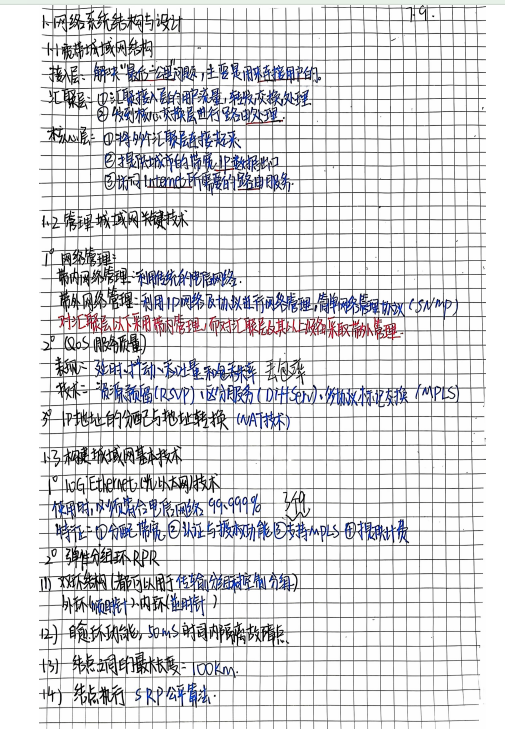 7.9.
1. 网络系统结构与设计
1.1 宽带城域网结构
接入层：解决"最后一公里"问题，主要是用来连接用户的。
汇聚层：①汇聚接入层的用户流量，转发交换处理
②发到核心交换层进行路由处理
核心层：①将多个汇聚层连接起来
②提供城市的带宽IP数据出口
③访问Internet所需要的路由服务.
1.2 管理城域网关键技术
1° 网络管理：
带内网络管理：利用传统的电信网络.
带外网络管理：利用IP网络及协议进行网络管理，简单网络管理协议(SNMP)
对汇聚层以下采用带内管理，而对汇聚层及其以上网络采取带外管理.
2° (QoS服务质量)
表现：延时、抖动、吞吐量和包丢失率 丢包率
技术：资源预留(RSVP)、区分服务(DiffServ)、多协议标记交换(MPLS)
3° IP地址的分配与地址转换(NAT技术)
1.3 构建城域网基本技术
1° 10G Ethernet(光以太网)技术
使用时，必须符合电信网络 99.999% 3个9
特征：①分配带宽②认证与授权功能③支持MPLS④提供计费
2° 弹性分组环RPR
(1) 双环结构(都可以用于传输分组和控制分组)
外环(顺时针)、内环(逆时针)
(2) 自愈环功能，50ms时间内隔离故障点
(3) 结点之间的最大长度：100Km.
(4) 结点执行 SRP公平算法.